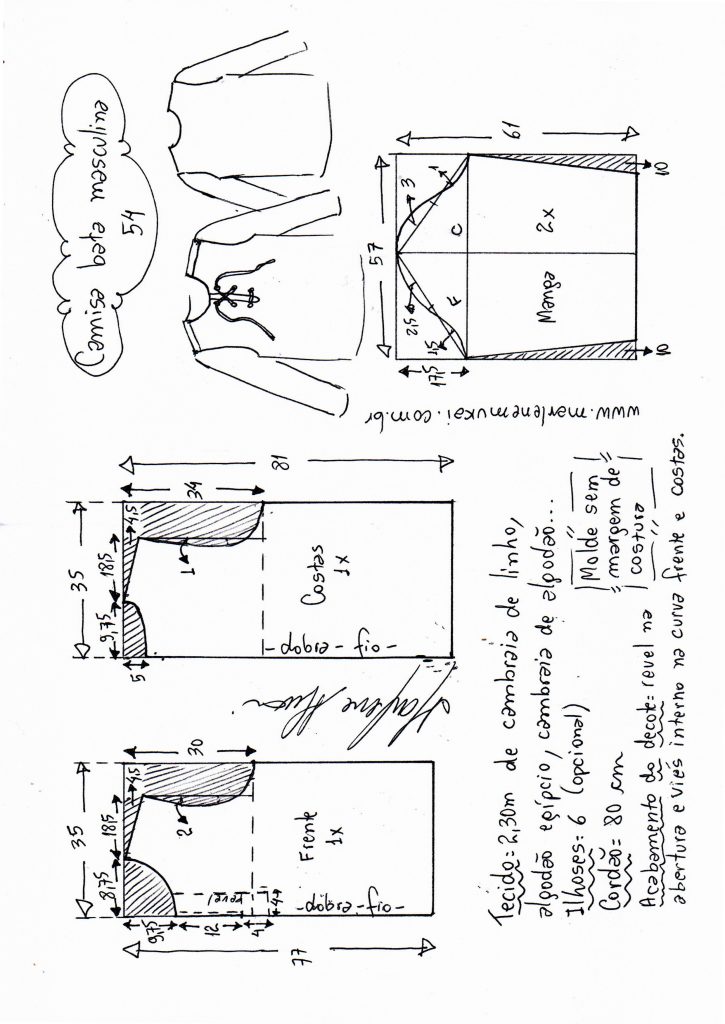 Camisa bata masculina
54
57
61
17,5
2,5
1,5
3
1
F
C
Manga
2x
10
10
www.marlenemukai.com.br
35
9,75
18,5
4,5
34
81
5
1
Costas
1x
-dobra-fio-
35
8,75
18,5
4,5
30
77
9,75
12
4
4
2
revel
Frente
1x
-dobra-fio-
Tecido= 2,30m de cambraia de linho,
algodão egípcio, cambraia de algodão...
Ilhoses= 6 (opcional)
Cordão= 80 cm
Acabamento do decote= revel na
abertura e viés interno na curva frente e costas.
Molde sem
margem de
costura